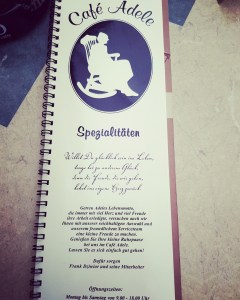 Café Adele
Spezialitäten
Willst Du glücklich sein im Leben,
trage bei zu anderem Glück,
denn die Freude, die wir geben,
kehrt ins eigne Herz zurück.
Getreu Adeles Lebensmotto,
die immer mit viel Herz und viel Freude
ihre Arbeit erledigte, versuchen auch wir
Ihnen mit unserer reichhaltigen Auswahl und
unserem freundlichem Serviceteam
eine kleine Freude zu machen.
Genießen Sie Ihre kleine Ruhepause
bei uns im Café Adele.
Lassen Sie es sich einfach gut gehen!
Dafür sorgen
Frank und seine Mitarbeiter
Öffnungszeiten:
Montag bis Samstag von 9.00 - 18.00 Uhr